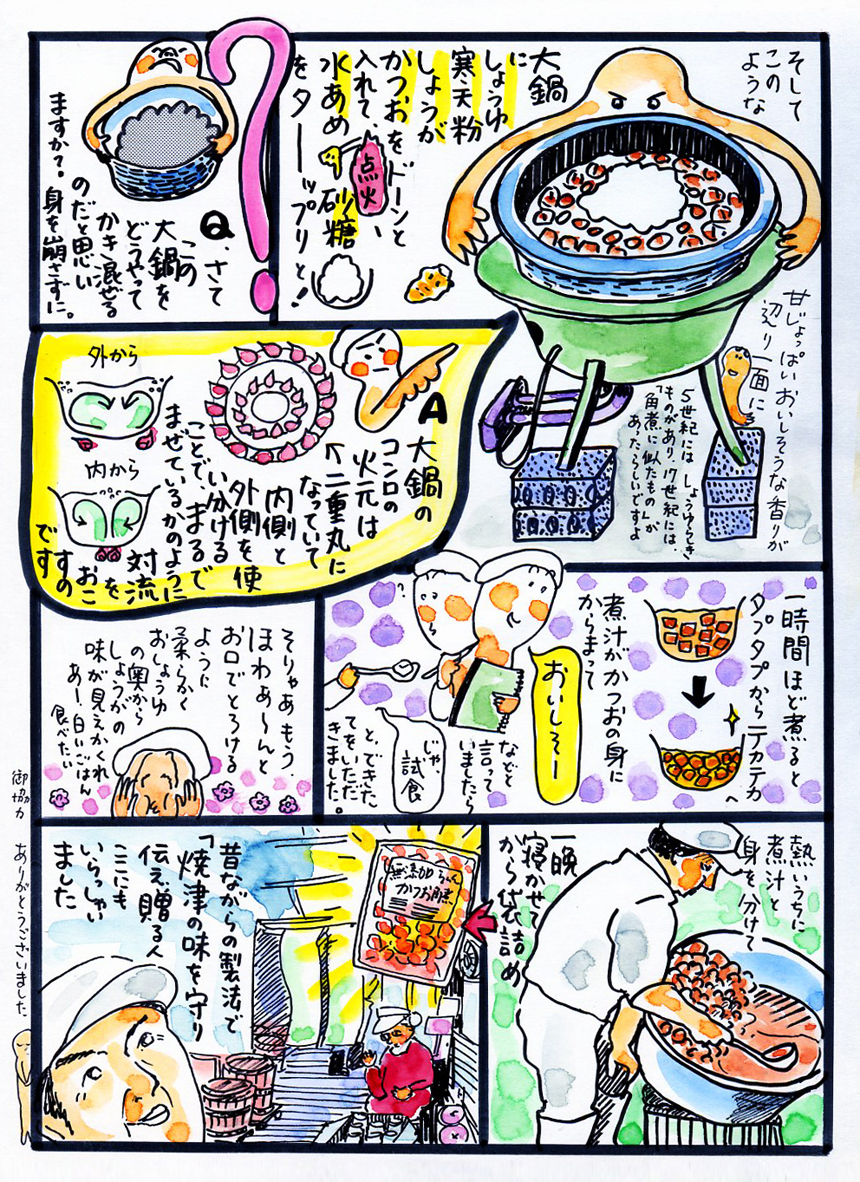 そして
この
ような
大鍋
に
しょうゆ
寒天粉
しょうが
かつおをドーンと
入れて、
点火
水あめ
砂糖
をターップリと!
甘じょっぱいおいしそうな香りが
辺り一面に
5世紀にはしょうゆらしき
ものがあり、17世紀には、
「角煮に似たもの」が
あったらしいですよ
?
Q.さて
この
大鍋を
どうやって
かき混ぜる
のだと思い
ますか?。身を崩さずに。
A
大鍋の
コンロの
火元は
↑二重丸に
なっていて
内側と
外側を使
い分ける
ことで、まるで
まぜているかのように
対流
を
おこ
すの
です
外から
内から
一時間ほど煮ると
タプタプからテカテカへ
煮汁がかつおの身に
からまって
おいしそー
などと
言って
いましたら
じゃ
試食
と、できた
てをいただ
きました。
そりゃあもう、
ほわぁ〜んと
お口でとろける
ように
柔らかく
おしょうゆ
の奥から
しょうがの
味が見えかくれ
あー、白いごはん
食べたい
熱いうちに
煮汁と
身を分けて
一晩
寝かせて
から袋詰め
無添加
かつお角煮
昔ながらの製法で
「焼津の味を守り
伝え贈る人
ここにも
いらっしゃい
ました
御協力 ありがとうございました。